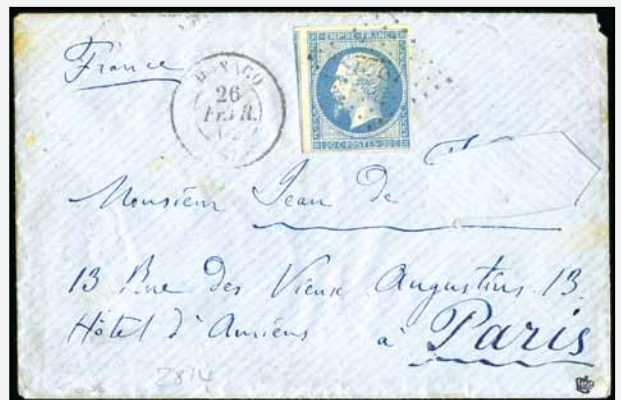 France
MONACO
26
FEVR.
EMPIRE FRANC
20 C POSTES 20 C
Monsieur Jean de
13 Rue des Vieux Augustins. 13.
Hôtel d'Amiens à Paris
2814